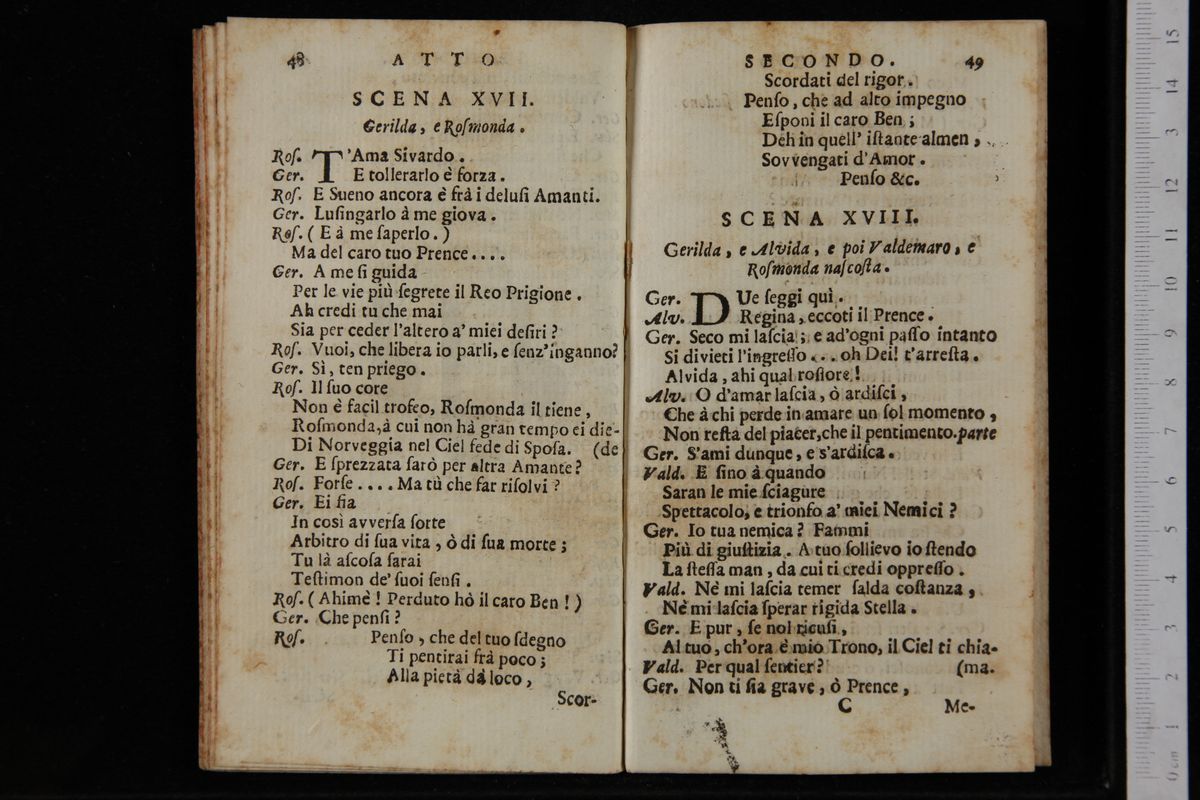 48 ATTO
SCENA XVII.
Gerilda, e Roſmonda.
Roſ. T'Ama Sivardo.
Ger. E tollerarlo è forza.
Roſ. E Sueno ancora è frà i deluſi Amanti.
Ger. Luſingarlo à me giova.
Roſ. (E à me ſaperlo.)
Ma del caro tuo Prence....
Ger. A me ſi guida
Per le vie più ſegrete il Reo Prigione.
Ah credi tu che mai
Sia per ceder l'altero a' miei deſiri?
Roſ. Vuoi, che libera io parli, e ſenz'inganno?
Ger. Sì, ten priego.
Roſ. Il ſuo core
Non è facil trofeo, Roſmonda il tiene,
Roſmonda, à cui non hà gran tempo ei die-
Di Norveggia nel Ciel fede di Spoſa. (de
Ger. E ſprezzata ſarò per altra Amante?
Roſ. Forſe.... Ma tù che far riſolvi?
Ger. Ei ſia
In così avverſa ſorte
Arbitro di ſua vita, ò di ſua morte;
Tu là aſcoſa ſarai
Teſtimon de' ſuoi ſenſi.
Roſ. (Ahimè! Perduto hò il caro Ben!)
Ger. Che penſi?
Roſ. Penſo, che del tuo ſdegno
Ti pentirai frà poco;
Alla pietà dà loco,
Scor-
SECONDO. 49
Scordati del rigor.
Penſo, che ad alto impegno
Eſponi il caro Ben;
Deh in quell' iſtante almen,
Sovvengati d'Amor.
Penſo &c.
SCENA XVIII.
Gerilda, e Alvida, e poi Valdemaro, e
Roſmonda naſcoſta.
Ger. DUe ſeggi quì.
Alv. Regina, eccoti il Prence.
Ger. Seco mi laſcia; e ad'ogni paſſo intanto
Si divieti l'ingreſſo... oh Dei! t'arreſta.
Alvida, ahi qual roſſore!
Alv. O d'amar laſcia, ò ardiſci,
Che à chi perde in amare un ſol momento,
Non reſta del piacer, che il pentimento. parte
Ger. S'ami dunque, e s'ardiſca.
Vald. E ſino à quando
Saran le mie ſciagure
Spettacolo, e trionfo a' miei Nemici?
Ger. Io tua nemica? Fammi
Più di giuſtizia. A tuo ſollievo io ſtendo
La ſteſſa man, da cui ti credi oppreſſo.
Vald. Nè mi laſcia temer ſalda coſtanza,
Nè mi laſcia ſperar rigida Stella.
Ger. E pur, ſe nol ricuſi,
Al tuo, ch'ora è mio Trono, il Ciel ti chia-
Vald. Per qual ſentier? (ma.
Ger. Non ti ſia grave, ò Prence,
C Me-